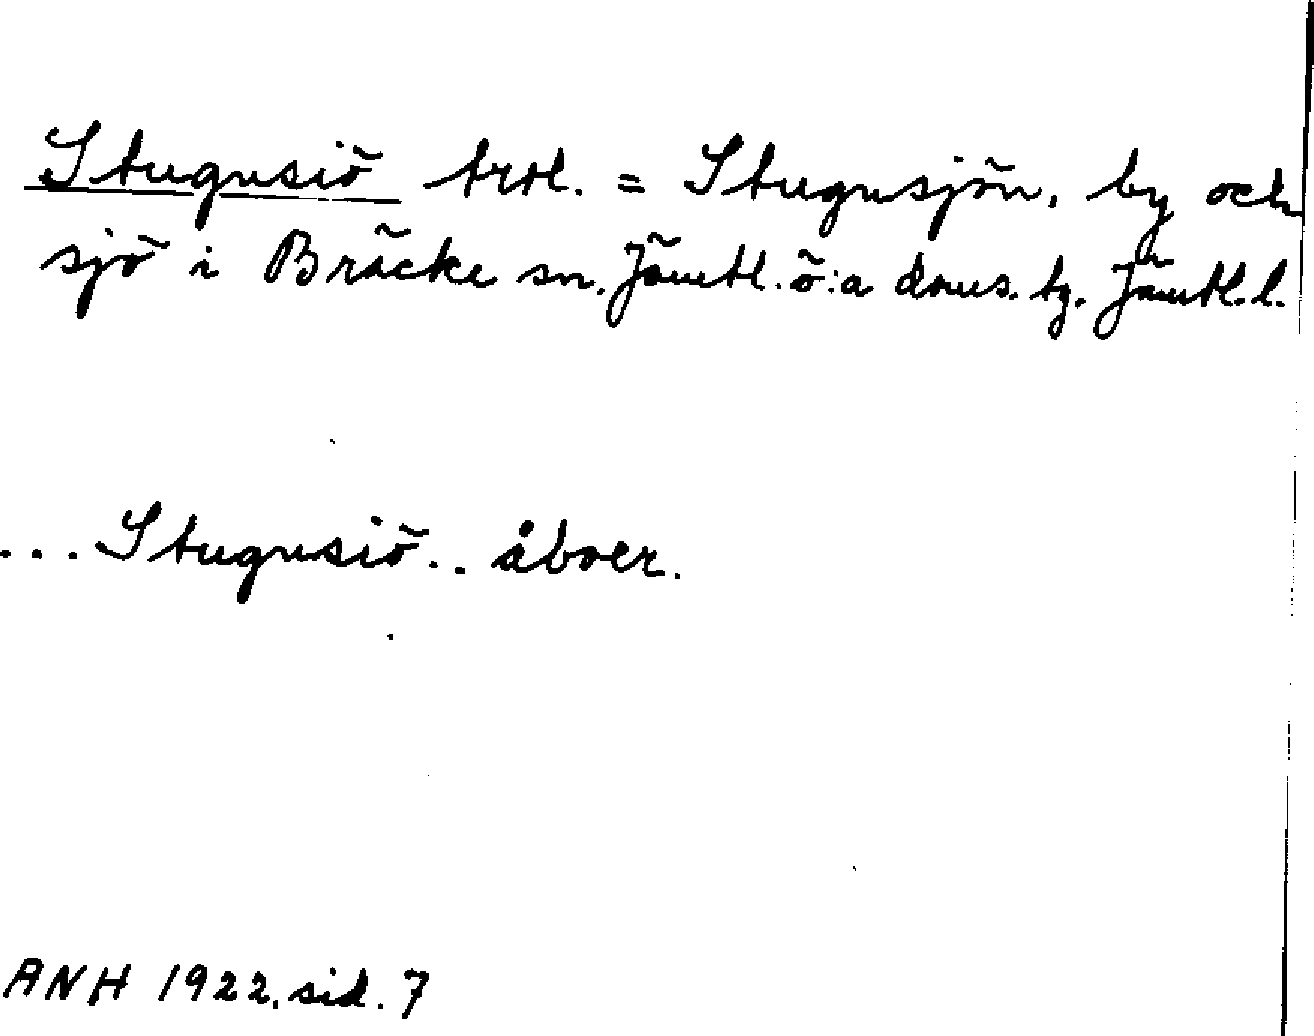 Stugusiö trol. = Stugusjön, by och
sjö i Bräcke sn. Jämtl. ö:a doms. tg. Jämtl. l.
... Stugusiö .. åboer.
ANH 1922, sid. 7